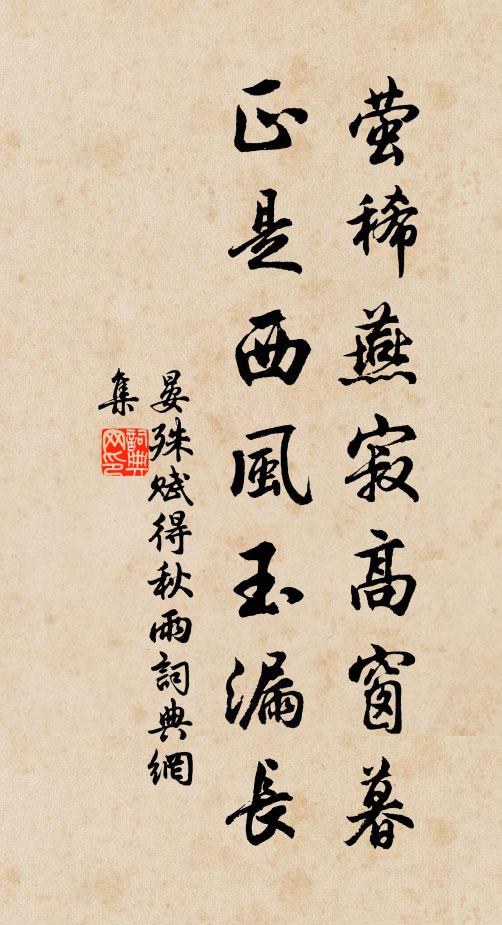 螢稀燕寂高窗暮
正是西風玉漏長
晏殊賦得秋雨詞典網
集
詞典網印